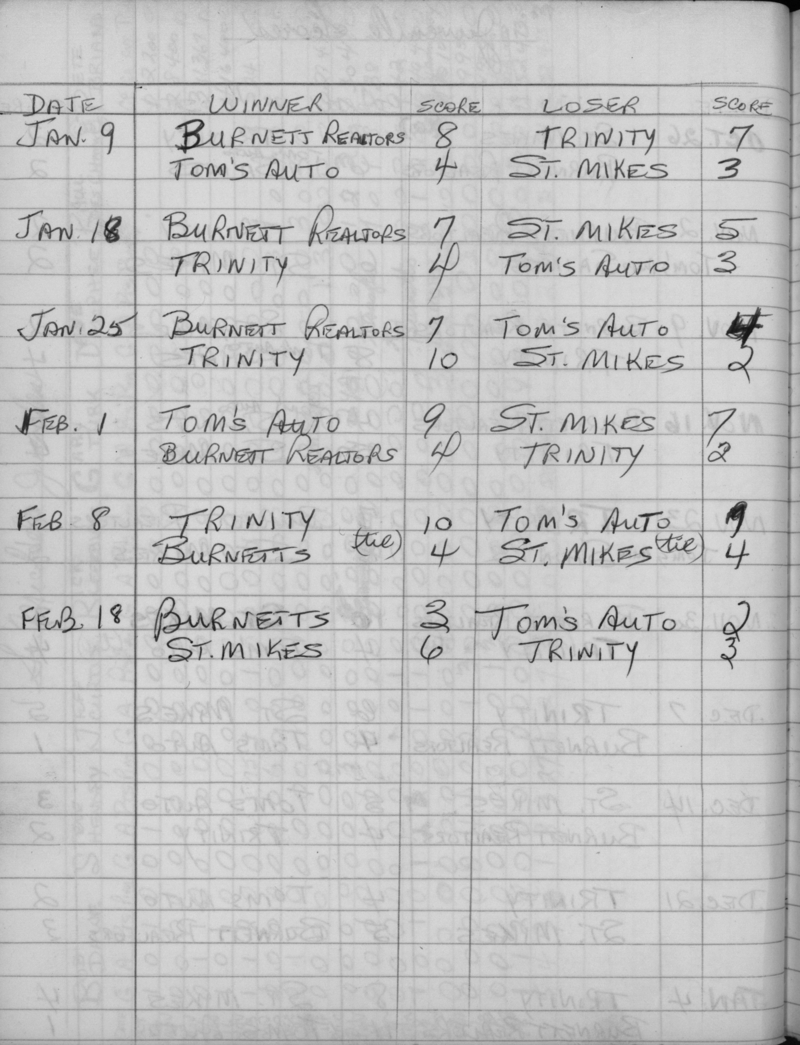 DATE WINNER SCORE LOSER SCORE
JAN. 9 BURNETT REALTORS 8 TRINITY 7
TOM'S AUTO 4 ST. MIKES 3
JAN. 18 BURNETT REALTORS 7 ST. MIKES 5
TRINITY 4 TOM'S AUTO 3
JAN. 25 BURNETT REALTORS 7 TOM'S AUTO 4
TRINITY 10 ST. MIKES 2
FEB. 1 TOM'S AUTO 9 ST. MIKES 7
BURNETT REALTORS 4 TRINITY 2
FEB. 8 TRINITY 10 TOM'S AUTO 9
BURNETTS (tie) 4 ST. MIKES (tie) 4
FEB. 18 BURNETTS 3 TOM'S AUTO 2
ST. MIKES 6 TRINITY